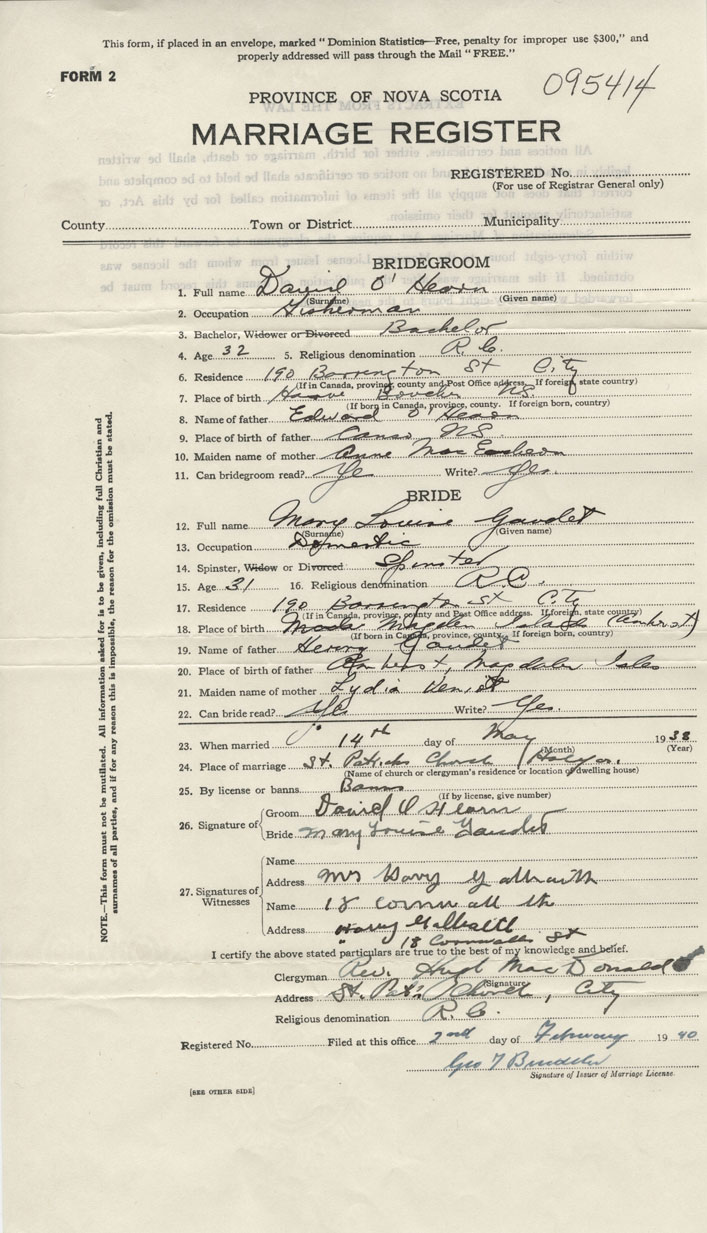 This form, if placed in an envelope, marked "Dominion Statistics—Free, penalty for improper use $300," and
properly addressed will pass through the Mail "FREE."
FORM 2
095414
PROVINCE OF NOVA SCOTIA
MARRIAGE REGISTER
REGISTERED No.
(For use of Registrar General only)
County Town or District Municipality
BRIDEGROOM
1. Full name David O'Hearn
(Surname) (Given name)
2. Occupation Fisherman
3. Bachelor, Widower or Divorced Bachelor
4. Age 32 5. Religious denomination R.C.
6. Residence 190 Barrington St City
(If in Canada, province, county and Post Office address. If foreign, state country)
7. Place of birth N.S.
(If born in Canada, province, county. If foreign born, country)
8. Name of father Edward O'Hearn
9. Place of birth of father Canso N.S.
10. Maiden name of mother Anne MacEachern
11. Can bridegroom read? Yes Write? Yes.
BRIDE
12. Full name Mary Louise Gaudet
(Surname) (Given name)
13. Occupation Domestic
14. Spinster, Widow or Divorced Spinster
15. Age 31 16. Religious denomination R.C.
17. Residence 190 Barrington St City
(If in Canada, province, county and Post Office address. If foreign, state country)
18. Place of birth Magdalen Islands (Amherst)
(If born in Canada, province, county. If foreign born, country)
19. Name of father Henry Gaudet
20. Place of birth of father Amherst, Magdalen Isles
21. Maiden name of mother Lydia
22. Can bride read? Yes Write? Yes.
23. When married 14th day of May 1938
(Month) (Year)
24. Place of marriage St. Patricks Church Halifax.
(Name of church or clergyman's residence or location of dwelling house)
25. By license or banns Banns
(If by license, give number)
26. Signature of Groom David O Hearn
Bride Mary Louise Gaudet
27. Signatures of Witnesses
Name
Address Mrs Harry Galbraith
Name 18 Cornwall St
Address Harry Galbraith
" 18 Cornwallis St
I certify the above stated particulars are true to the best of my knowledge and belief.
Clergyman Rev. Hugh MacDonald
(Signature)
Address St. Pat's Church, City
Religious denomination R.C.
Registered No. Filed at this office 2nd day of February 1940
Geo T
Signature of Issuer of Marriage License.
[SEE OTHER SIDE]
NOTE.—This form must not be mutilated. All information asked for is to be given, including full Christian and
surnames of all parties, and if for any reason this is impossible, the reason for the omission must be stated.